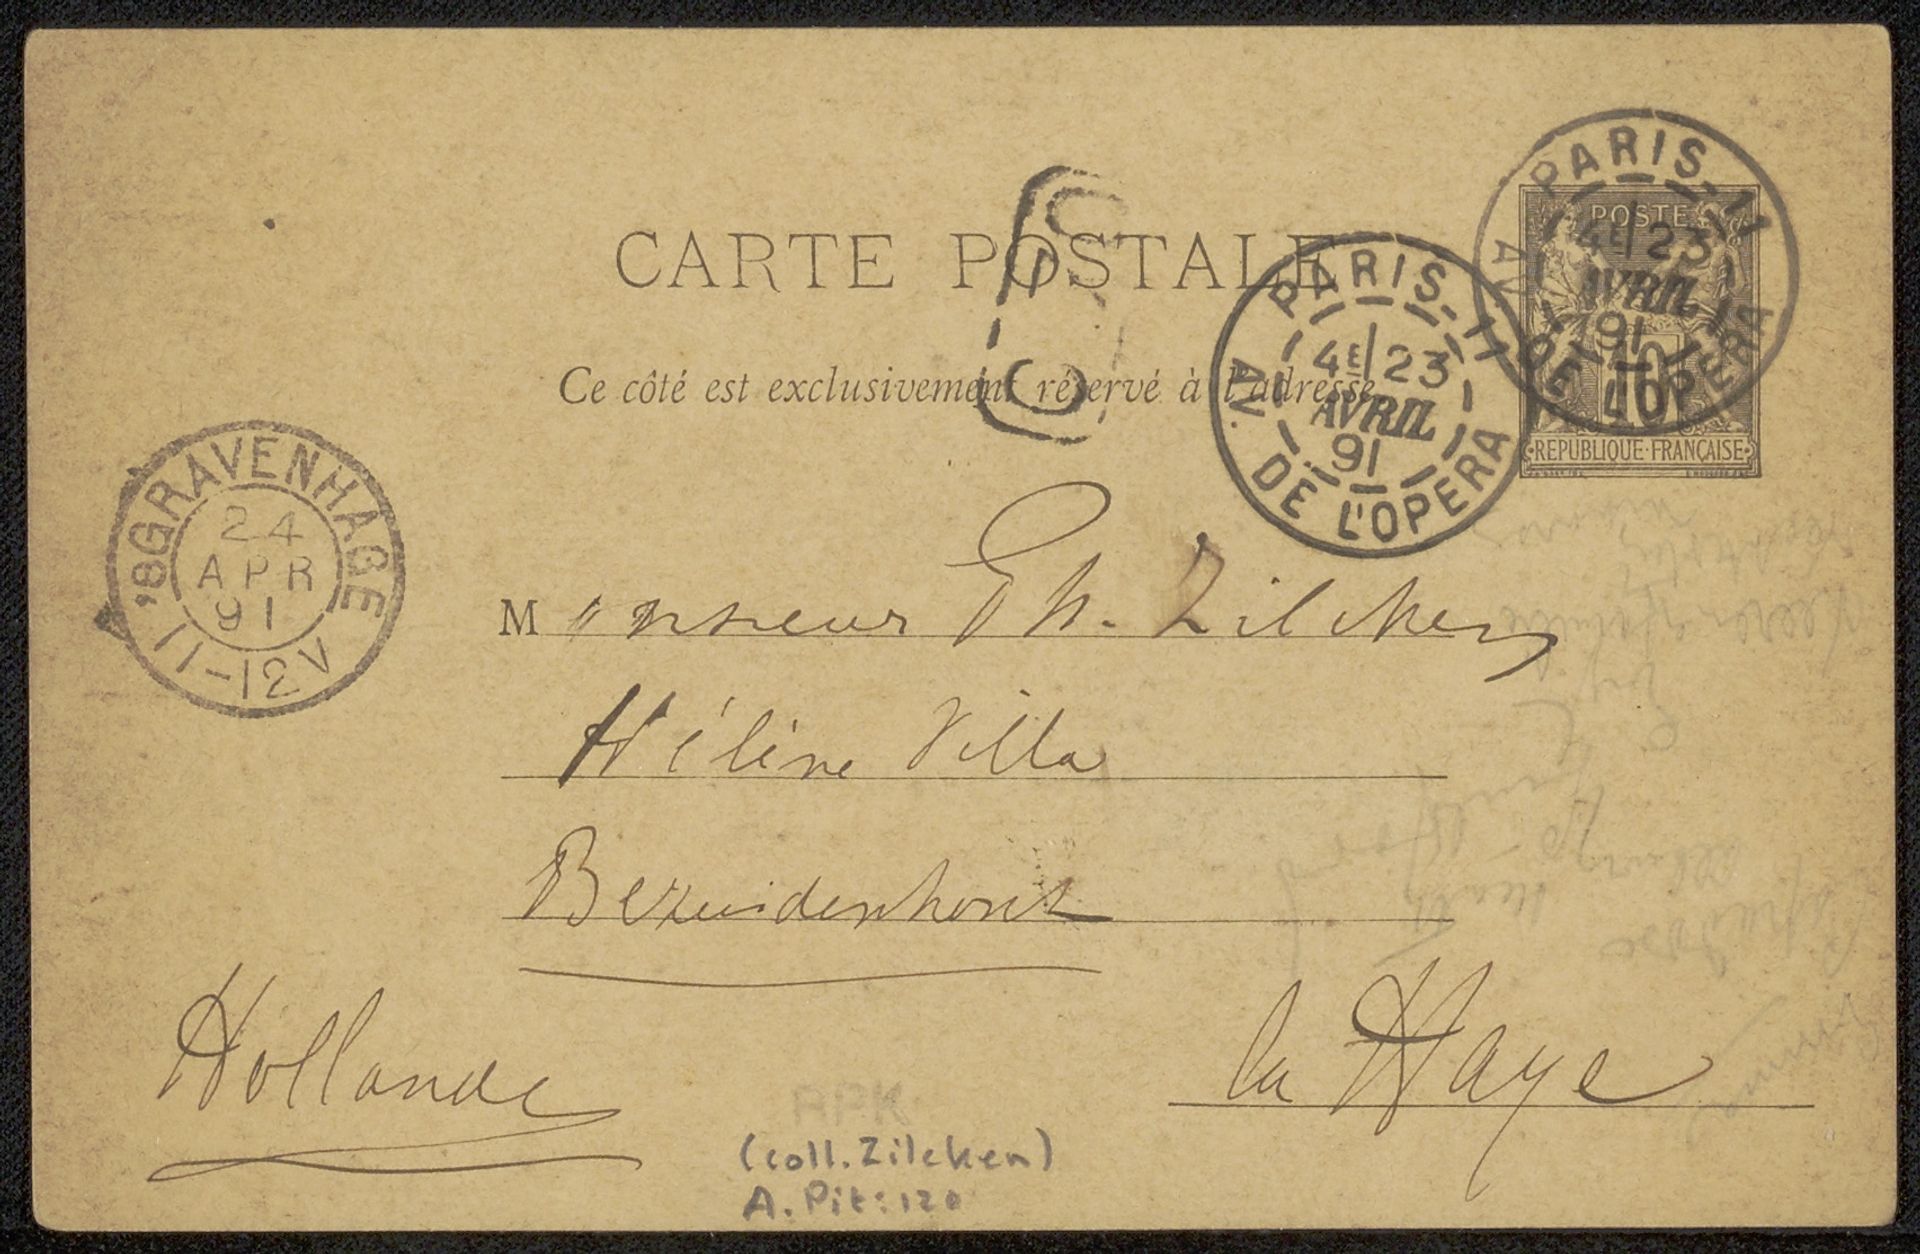 CARTE POSTALE
Ce côté est exclusivement réservé à l'adresse
PARIS-11
4E/23
AVRIL
91
AV. DE L'OPERA
PARIS-11
4E/23
AVRIL
91
AV. DE L'OPERA
POSTE
10
REPUBLIQUE·FRANÇAISE
'SGRAVENHAGE
24
APR
91
11-12V
Monsieur Ph. Zilcken
Hélène Villa
Bezuidenhout
la Haye
Hollande
APK
(coll. Zilcken)
A. Pit: 120